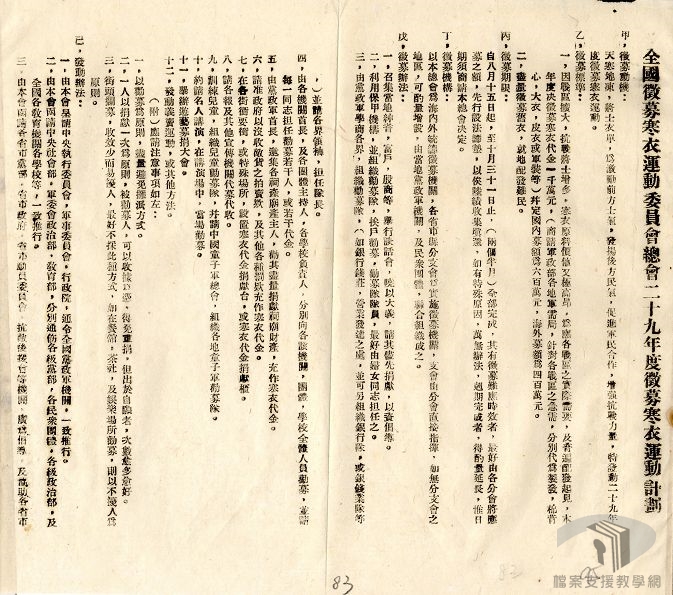 全國徵募寒衣運動委員會總會二十九年度徵募寒衣運動計劃
甲、徵募動機：
天寒地凍，將士衣單，為激勵前方士氣，發揚後方民氣，促進軍民合作，增強抗戰力量，特發動二十九年
度徵募寒衣運動。
乙、徵募標準：
一、因戰區擴大，抗戰將士增多，寒衣原料價值又極高昂，為應各戰區之實際需要，及普遍配發起見，本
年度決徵募寒衣代金一千萬元，（商請軍政部各地軍需局，針對各戰區之急需，分別代為製發，棉背
心，大衣，皮衣或軍裝等）并定國內募額為六百萬元，海外募額為四百萬元。
二、盡量徵募舊衣，就地配發難民。
丙、徵募期限：
自八月十五日起，至十月三十一日止，（兩個半月）全部完成，其有徵募難應時效者，最好由各分會將應
募之額，先行設法歸墊，以俟陸續收集還墊，如有特殊原因，萬無辦法，逾期完成者，得酌量延長，惟日
期須商請本總會決定。
丁、徵募機構：
以本總會為海內外統籌徵募機關，各省市縣分支會為實施徵募機關，支會由分會直接指揮，如無分支會之
地區，可酌量增設，由當地黨政軍機關，及民眾團體，聯合組織成之。
戊、徵募辦法：
一、召集當地紳耆，富戶，殷商等，舉行談話會，曉以大義，請其儘先捐獻，以資倡導。
二、利用保甲機構，並組織勸募隊，挨戶勸募，勸募隊隊員，最好由婦女同志担任之。
三、由黨政軍學商各界，組織勸募隊，（如銀行錢莊，營業發達之處，並可另組織銀行隊，或銀錢業隊等
）並請各界領袖，担任隊長。
四、由各機關首長，及各團體主持人，各學校負責人，分別向各該機關，團體，學校全體人員勸募，並請
每一同志担任勸募若干人，或若干代金。
五、由黨政軍首長，邀集各祠廟產主人，勸其盡量捐獻祠廟財產，充作寒衣代金。
六、請准政府以沒收敵貨之拍賣款，及其他各種罰款充作寒衣代金。
七、在各衝衢要街，或特殊場所，設置寒衣代金捐獻台，或寒衣代金捐獻櫃。
八、請各報及其他宣傳機關代募代收。
九、訓練兒童，組織兒童勸募隊，并請中國童子軍總會，組織各地童子軍勸募隊。
十、約請名人講演，在講演場中，當場勸募。
十一、舉辦遊藝募捐大會。
十二、發動義賣運動，或其他方法。
（附）應請注意事項如左：
一、以勸募為原則，盡量避免攤派方式。
二、一人以捐獻一次為原則，被勸募人，可以收據為憑，得免重捐，但出於自願者，次數愈多愈好。
三、街頭獻募，收效少而易擾人，最好不採此種方式，如在餐館，茶社，及娛樂場所勸募，則以不擾人為
原則。
己、發動辦法：
一、由本會呈請中央執行委員會，軍事委員會，行政院，通令全國黨政軍機關，一致推行。
二、由本會函請中央社會部，軍委會政治部，教育部，分別通飭各級黨部，各民眾團體，各級政治部，及
全國各教育機關各學校等，一致推行。
三、由本會函請各省市黨部，各省市政府，各省市動員委員會，抗敵後援會等機關，廣為倡導，及協助各省市
83
83
檔案支援教學網